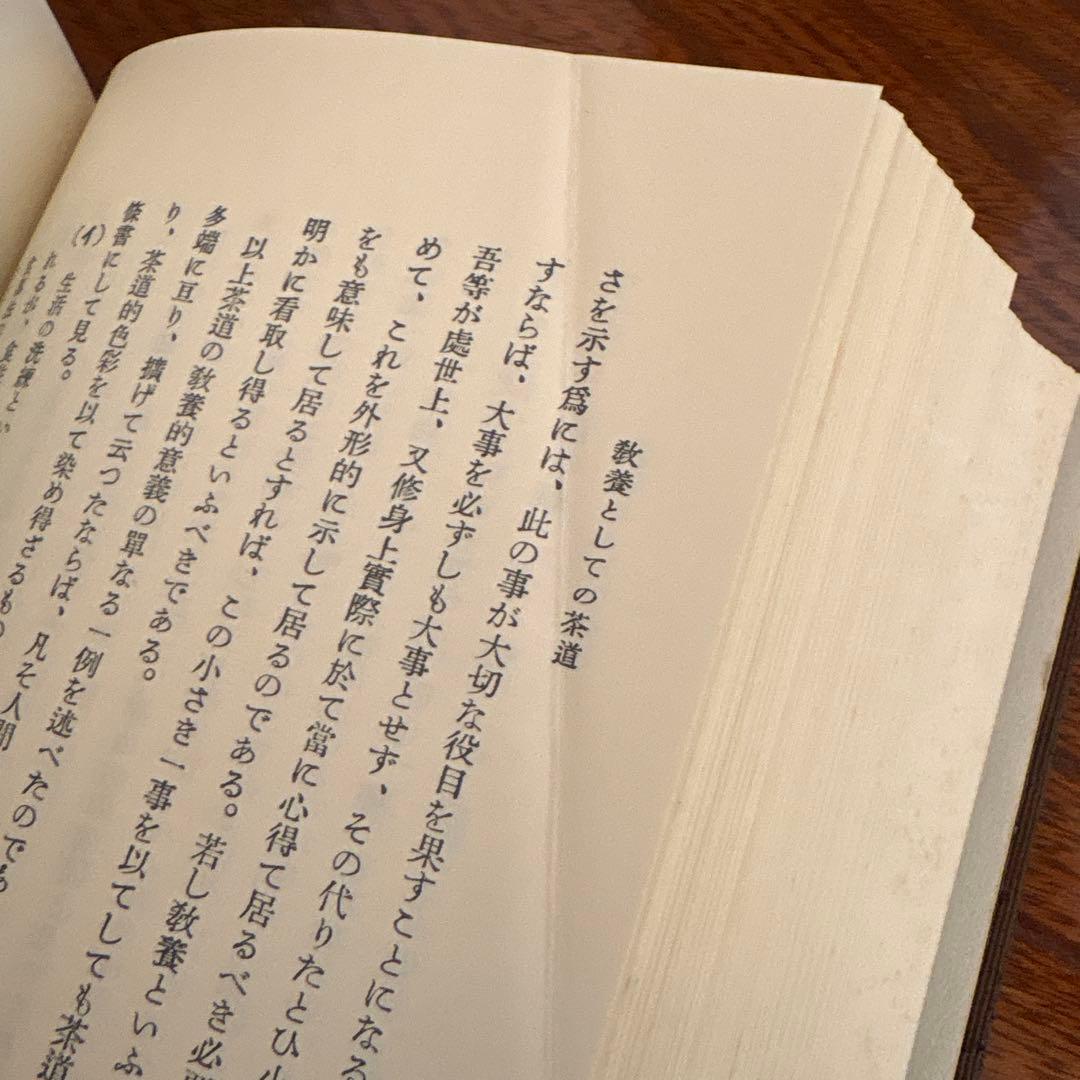 教養としての茶道
さを示す爲には、此の事が大切な役目を果すことになる
すならば、大事を必ずしも大事とせず、その代りたとひ小
吾等が處世上、又修身上實際に於て當に心得て居るべき必
めて、これを外形的に示して居るのである。若し教養といふ
をも意味して居るとすれば、この小さき一事を以てしても茶道
明かに看取し得るといふべきである。
以上茶道の教養的意義の單なる一例を述べたのであ
多端に亘り、擴げて云つたならば、凡そ人間
り、茶道的色彩を以て染め得さるもの
條書にして見る。
(イ) 生活の洗練とい
れるが、